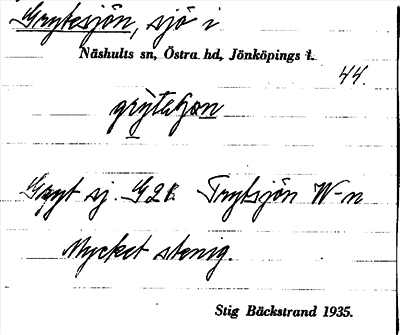 Grytesjön, sjö i
Näshults sn, Östra hd, Jönköpings l.
44.
Gryt sj. G2 Trytsjön W-n
Mycket stenig.
Stig Bäckstrand 1935.